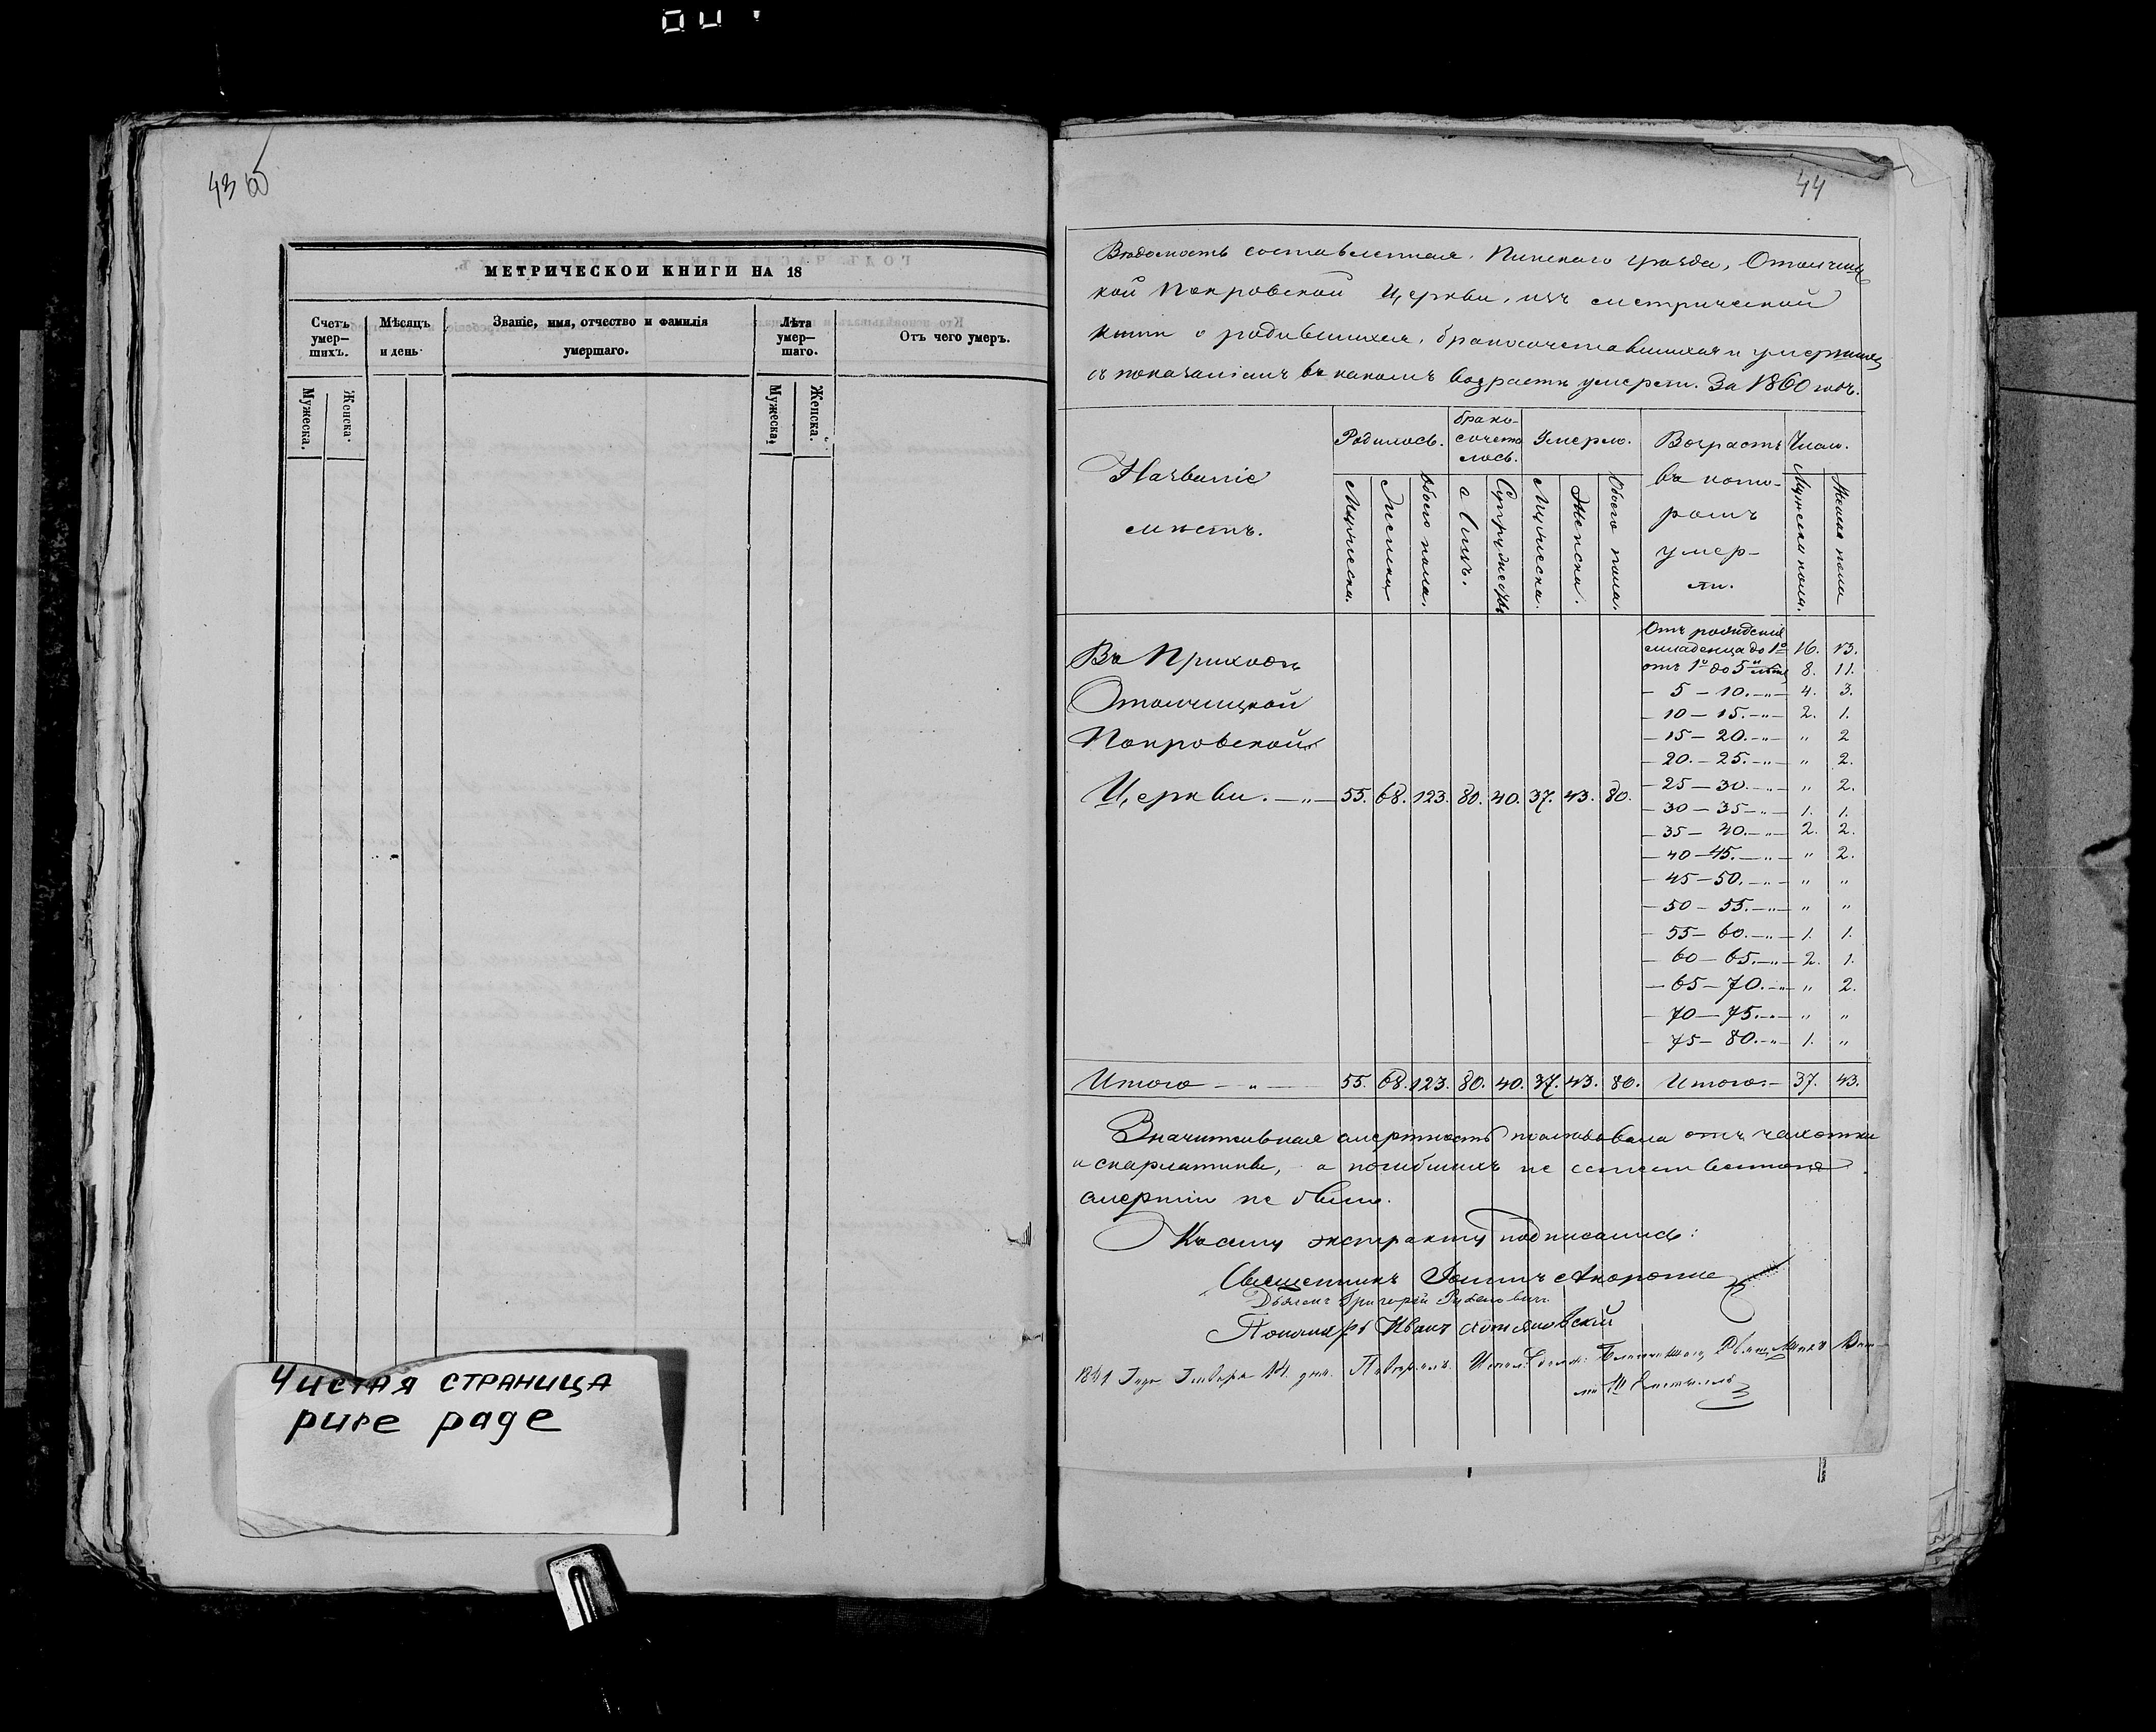 43 об
МЕТРИЧЕСКОЙ КНИГИ НА 18
Счетъ умер—шихъ.
Мѣсяцъ и день
Званіе, имя, отчество и фамилія умершаго.
Лѣта умер—шаго.
Отъ чего умеръ.
Мужеска.
Женска.
Мужеска.
Женска.
Чистая страница
pure page
44
Вѣдомость составленная, Пинскаго уѣзда, Отолчиц
кой Покровской Церкви, изъ метрической
книги о родившихся, бракосочетавшихся и умершихъ
съ показаніемъ въ какомъ возрастѣ умерли. За 1860 годъ.
Названіе
мѣстъ.
Родилось.
брако-
сочета
лось.
Умерло.
Возрастъ
въ кото-
ромъ
умер-
ли.
Число.
Мужеска.
Женска
Обоего пола.
Лицъ.
Супружествъ
Мужеска.
Женска.
Обоего пола.
Мужеска пола.
Женска пола
Въ Приходѣ
Отолчицкой
Покровской
Церкви. — „ — 55. 68. 123. 80. 40. 37. 43. 80.
Отъ рожденія
младенца до 1º 16. 13.
отъ 1º до 5и лѣтъ 8. 11.
— 5 — 10. — „ — 4. 3.
— 10 — 15. — „ — 2. 1.
— 15 — 20. — „ — „ 2
— 20. — 25. — „ — „ 2.
— 25 — 30. — „ — „ 2.
— 30 — 35 — „ — 1. 1.
— 35 — 40. — „ — 2. 2.
— 40 — 45. — „ — „ 2.
— 45 — 50. — „ — „ „
— 50 — 55. — „ — „ „
— 55 — 60. — „ — 1. 1.
— 60 — 65. — „ — 2. 1.
— 65 — 70. — „ — „ 2.
— 70 — 75. — „ — „ „
— 75 — 80. — „ — 1. „
Итого — „ — 55. 68. 123. 80. 40. 37. 43. 80. Итого — 37. 43.
Значительная смертность послѣдовала отъ чахотки
и скарлатины, а погибшихъ не естественною
смертію не было.
Къ сему экстракту подписались:
Священникъ Іоаннъ
Дьячекъ Григорій
Пономарь Иванъ
1861 Года Генваря 14. дня.